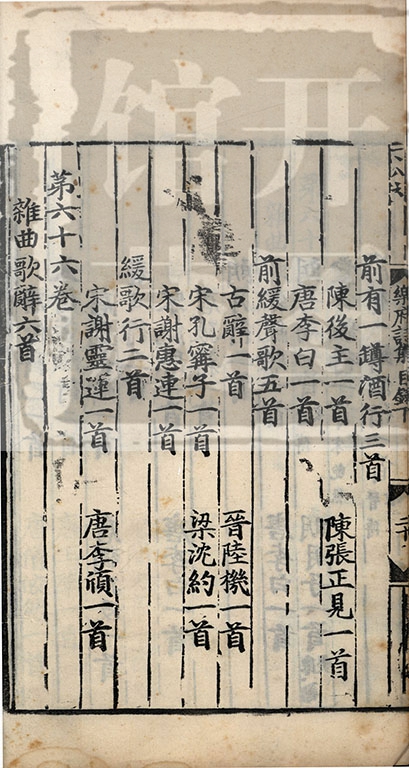 樂府詩集目錄下
前有一鐏酒行三首
陳後主一首 陳張正見一首
唐李白一首
前緩聲歌五首
古辭一首 晉陸機一首
宋孔甯子一首 梁沈約一首
宋謝惠連一首
緩歌行二首
宋謝靈運一首 唐李頎一首
第六十六卷
雜曲歌辭六首